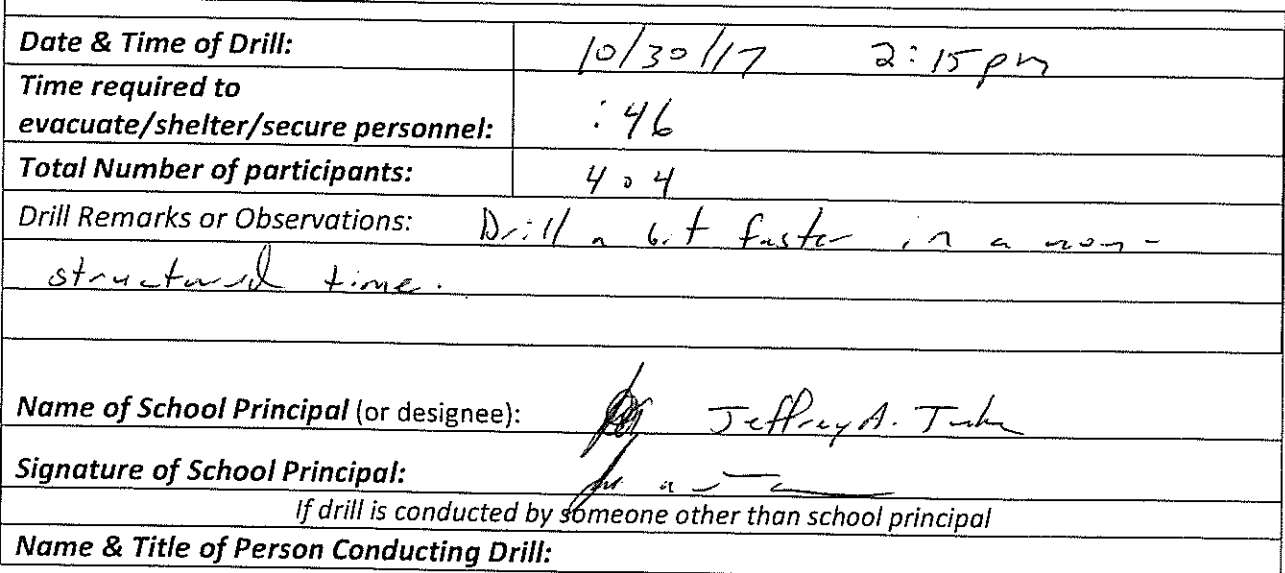 Date & Time of Drill: 10/30/17 2:15pm
Time required to
evacuate/shelter/secure personnel: :46
Total Number of participants: 404
Drill Remarks or Observations: Drill a bit faster in a non-
structured time.
Name of School Principal (or designee): Jeffrey A.
Signature of School Principal:
If drill is conducted by someone other than school principal
Name & Title of Person Conducting Drill: